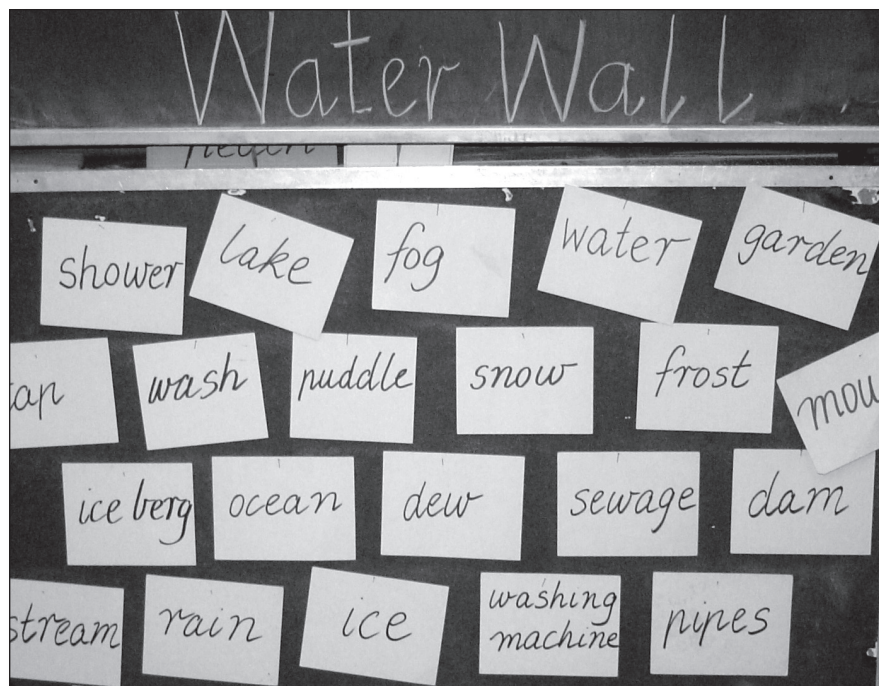 Water Wall
shower lake fog water garden
ap wash puddle snow frost mou
ice berg ocean dew sewage dam
stream rain ice washing machine pipes